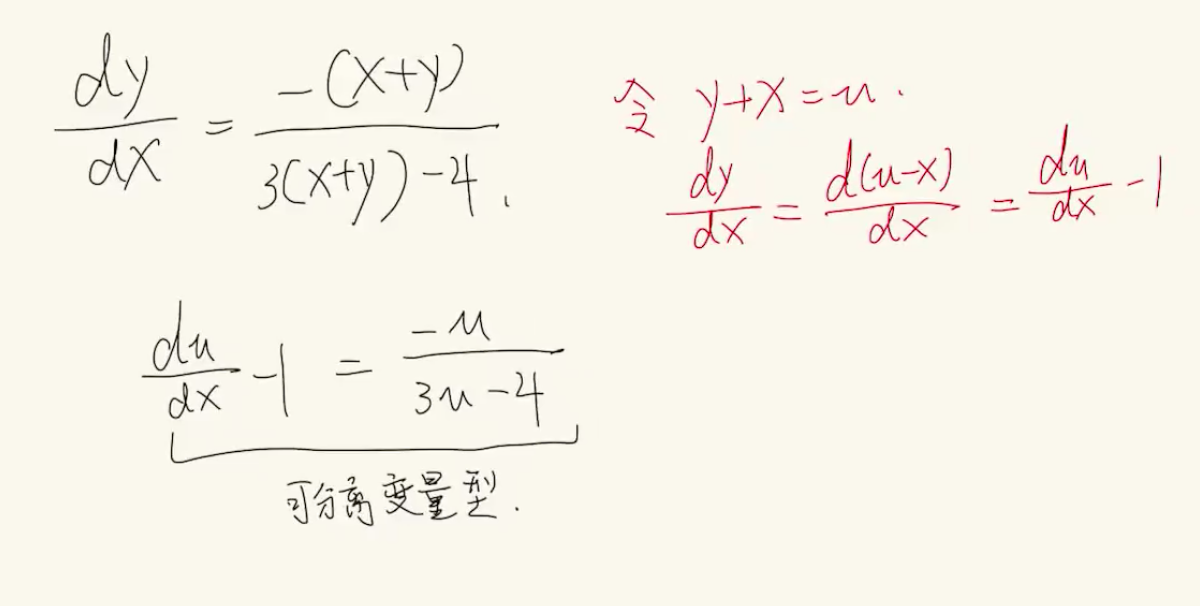 dy/dx = -(x+y)/(3(x+y)-4).
令 y+x=u.
dy/dx = d(u-x)/dx = du/dx -1
du/dx -1 = -u/(3u-4)
可分离变量型.